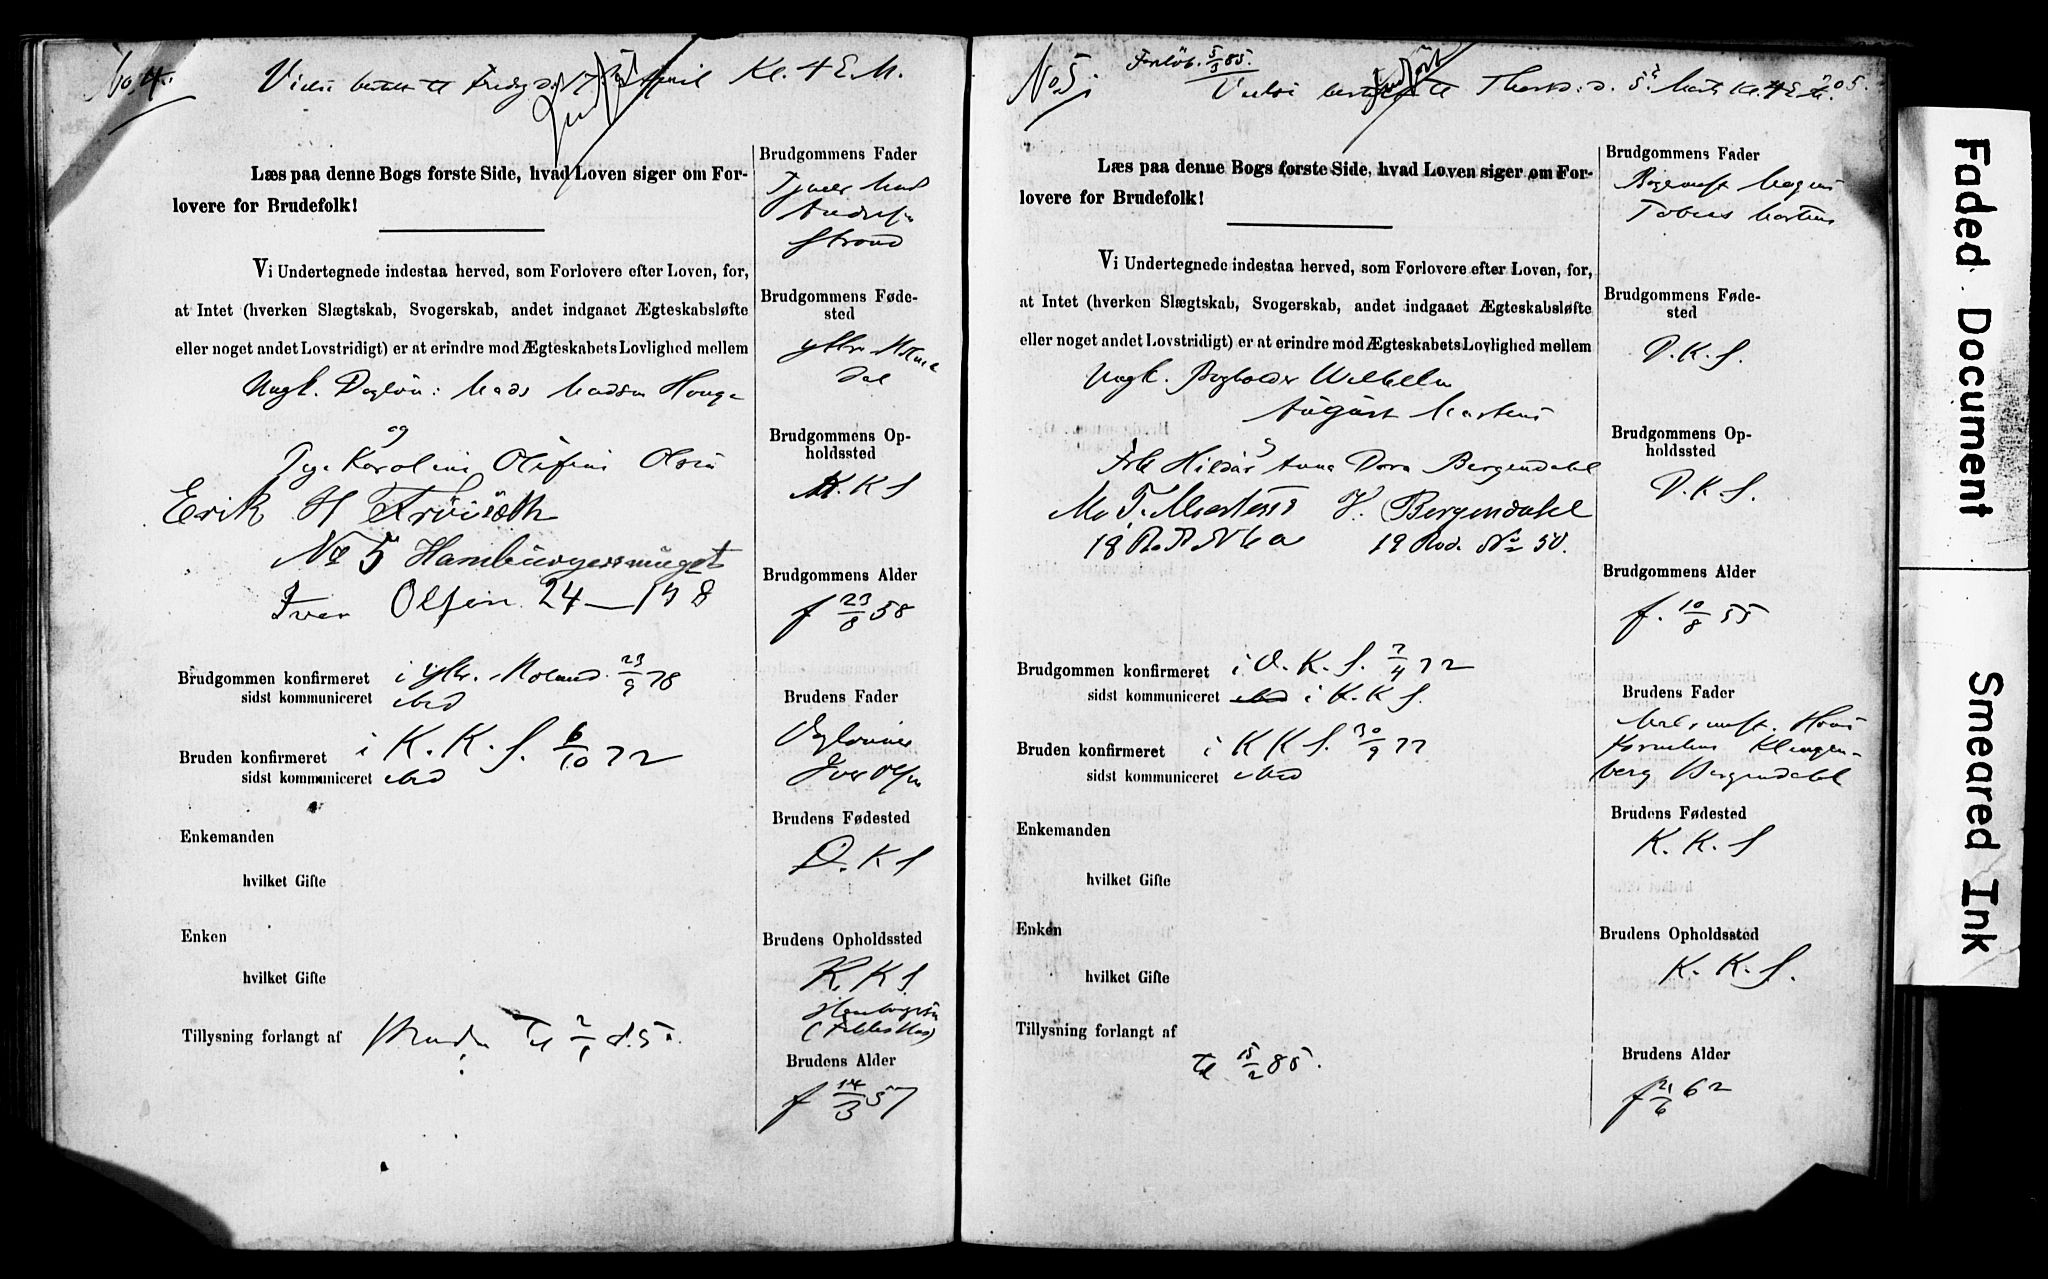 No. 4.
Vielse bestilt til Fredag d. 17 April Kl. 4 E.M.
Indført
Læs paa denne Bogs første Side, hvad Loven siger om For-
lovere for Brudefolk!
Vi Undertegnede indestaa herved, som Forlovere efter Loven, for,
at Intet (hverken Slægtskab, Svogerskab, andet indgaaet Ægteskabsløfte
eller noget andet Lovstridigt) er at erindre mod Ægteskabets Lovlighed mellem
Ungk. Dagløn: Mads Madsen Hauge
og
Pige Karoline Olefine Olsen
Erik H Frøisæth
No 5 Hamburgersmuget
Iver Olsen 24 — 198
Brudgommen konfirmeret i Ytr. Moland 23/9 78
sidst kommuniceret ibid
Bruden konfirmeret i K. K. S. 6/10 72
sidst kommuniceret ibid
Enkemanden
hvilket Gifte
Enken
hvilket Gifte
Tillysning forlangt af Bruden Til 2/1 85.
Brudgommens Fader
Mads
Andersen
Strand
Brudgommens Føde-
sted
Ytre Molne
dal
Brudgommens Op-
holdssted
K. K S
Brudgommens Alder
f 23/8 58
Brudens Fader
Daglønner
Iver Olsen
Brudens Fødested
D. K S
Brudens Opholdssted
K. K S.
Brudens Alder
f 14/3 57
No 5
Forlov. 5/3 85.
Vielse bestilt til Thorsd. d. 5 Marts Kl. 4 E M.
Indført
Læs paa denne Bogs første Side, hvad Loven siger om For-
lovere for Brudefolk!
Vi Undertegnede indestaa herved, som Forlovere efter Loven, for,
at Intet (hverken Slægtskab, Svogerskab, andet indgaaet Ægteskabsløfte
eller noget andet Lovstridigt) er at erindre mod Ægteskabets Lovlighed mellem
Ungk. Bogholder Wilhelm
August Martens
og
Frk Hilda Anna Dora Bergendahl
M. T. Martens H. Bergendahl
18 Rd. No 6 a 19 Rod. No 50.
Brudgommen konfirmeret i D. K. S. 7/4 72
sidst kommuniceret ibid i K. K S.
Bruden konfirmeret i K K S. 30/9 77
sidst kommuniceret ibid
Enkemanden
hvilket Gifte
Enken
hvilket Gifte
Tillysning forlangt af
Til 15/2 85.
Brudgommens Fader
Magnus
Tobias Martens
Brudgommens Føde-
sted
D. K. S.
Brudgommens Op-
holdssted
D. K. S.
Brudgommens Alder
f. 10/8 55
Brudens Fader
Hans
Kornelius Klingen-
berg Bergendahl
Brudens Fødested
K. K. S
Brudens Opholdssted
K. K. S.
Brudens Alder
f 21/6 62
Faded Document
Smeared Ink